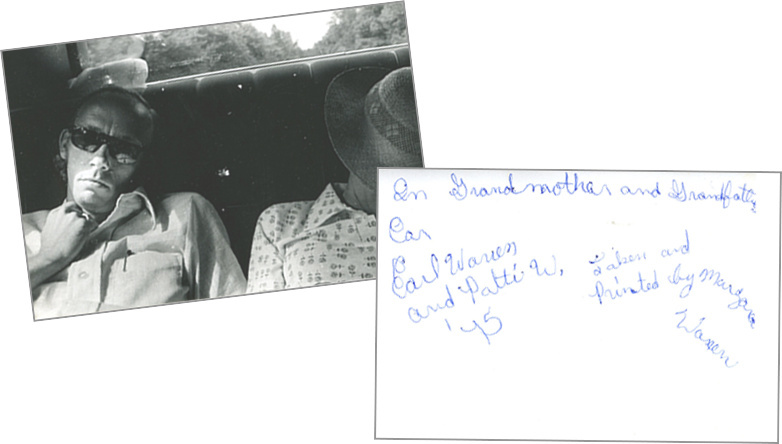 In Grandmother and Grandfather
Car
Carl Warren
and Patti W.
'75
Taken and
Printed by Margaret
Warren